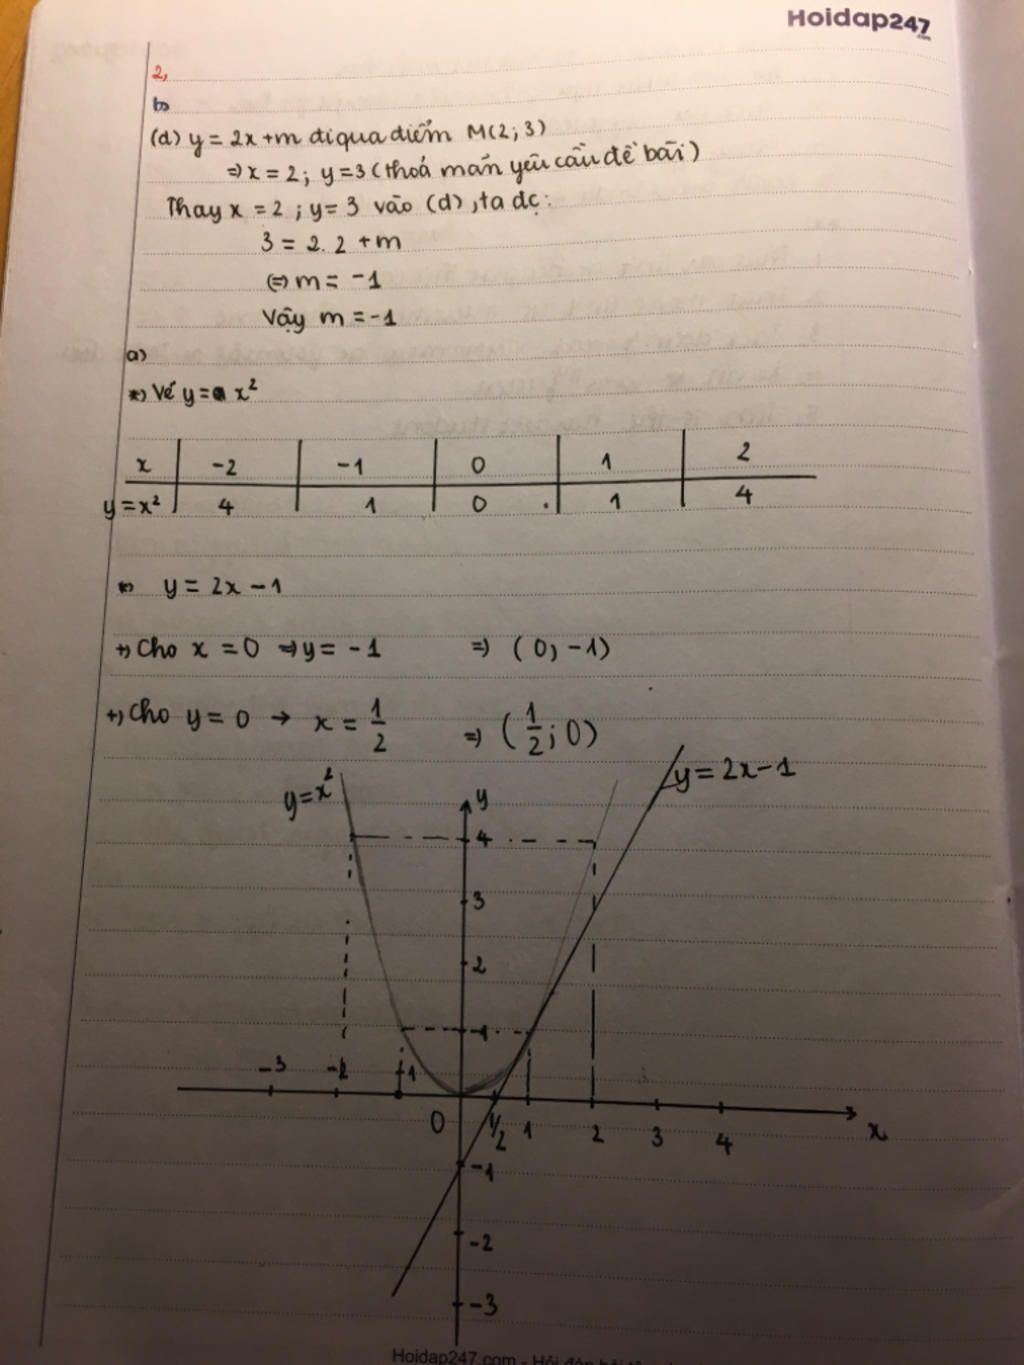 Hoidap247
.com
2,
b)
(d) y = 2x + m đi qua điểm M(2; 3)
=> x = 2; y = 3 (thoả mãn yêu cầu đề bài)
Thay x = 2; y = 3 vào (d), ta dc:
3 = 2. 2 + m
<=> m = -1
Vậy m = -1
a)
*) Vẽ y = x²
x -2 -1 0 1 2
y = x² 4 1 0 1 4
*) y = 2x - 1
+) Cho x = 0 => y = -1 => (0, -1)
+) Cho y = 0 → x = 1/2 => (1/2; 0)
y = 2x - 1
y = x²
y
4
3
2
1
-3 -2 -1
0 1/2 1 2 3 4 x
-1
-2
-3